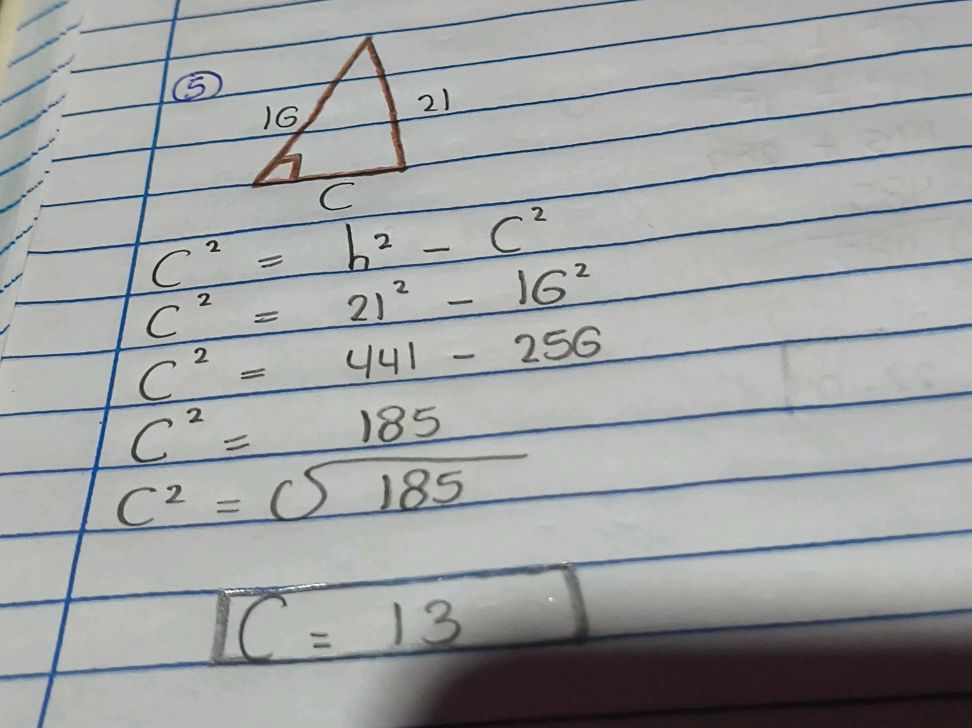 5
16
21
C
C² = h² - C²
C² = 21² - 16²
C² = 441 - 256
C² = 185
C² = √185
C = 13